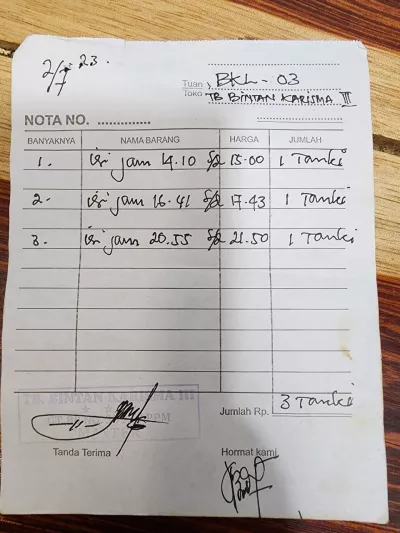 2/7 23.
Tuan BKL - 03
Toko TB BINTAN KARISMA III
NOTA NO. ..............
BANYAKNYA NAMA BARANG HARGA JUMLAH
1. isi jam 14.10 s/d 15.00 1 Tanki
2. isi jam 16.41 s/d 17.43 1 Tanki
3. isi jam 20.55 s/d 21.50 1 Tanki
TB. BINTAN KARISMA III
Jumlah Rp. 3 Tanki
Tanda Terima Hormat kami,